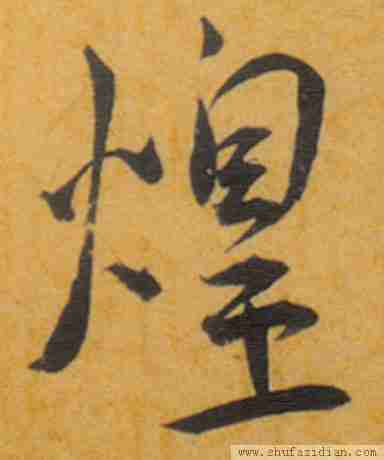 煌
www.shufazidian.com